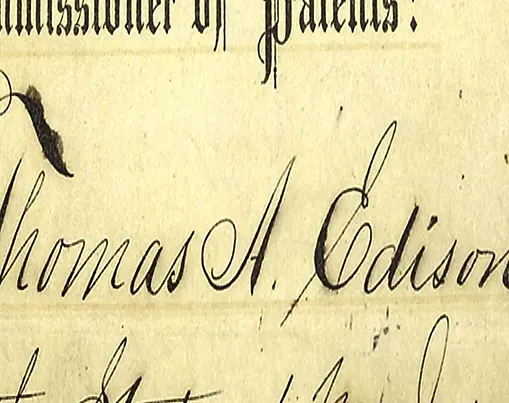 mmissioner of Patents:
Thomas A. Edison